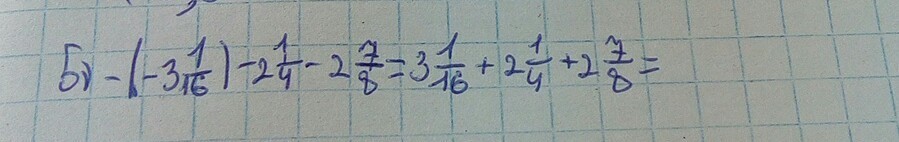 б) -(-3 1/16) - 2 1/4 - 2 7/8 = 3 1/16 + 2 1/4 + 2 7/8 =